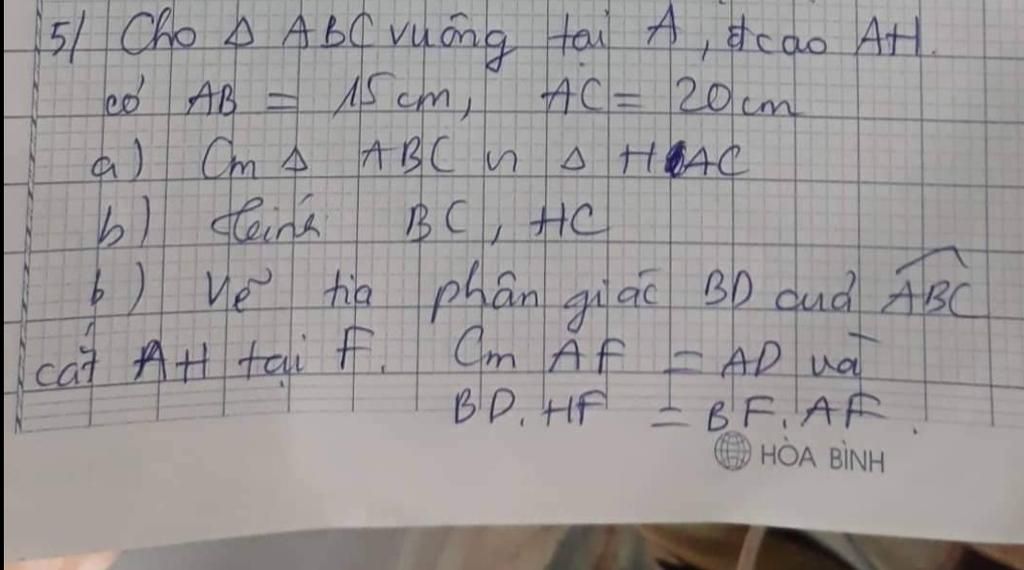 5/ Cho Δ ABC vuông tại A, đcao AH.
có AB = 15 cm, AC = 20 cm
a) Cm Δ ABC ᔕ Δ HAC
b) tính BC, HC
b) Vẽ tia phân giác BD của \widehat{ABC}
cắt AH tại F. Cm AF = AD và
BD. HF = BF. AF.
HÒA BÌNH